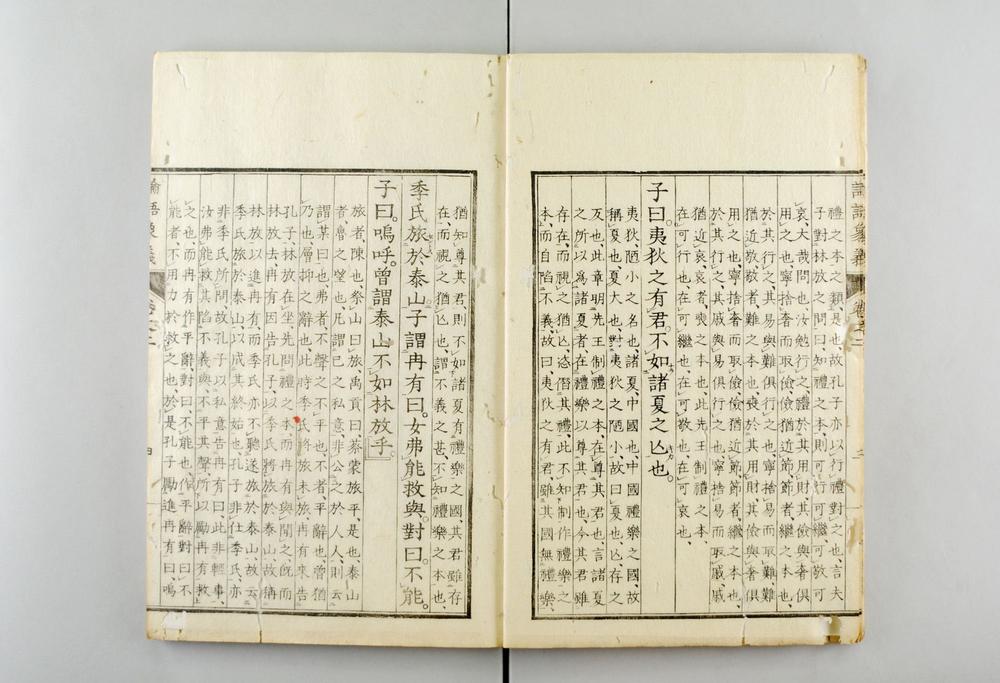 禮之本之類是也、故孔子亦以行禮對之也、言夫
子對林放之問曰、知禮之本、則可行可繼可敬可
哀、大哉問也、汝勉行之、禮於其用財、其儉與奢俱
用之也、寧捨奢而取儉、儉猶近節、節者、繼之本也、
於其行之、其易與難俱行之也、寧捨易而取難、難
猶近敬、敬者、難之本也、喪於其用財、其儉與奢俱
用之也、寧捨奢而取儉、儉猶近節、節者、繼之本也、
於其行之、其戚與易俱行之也、寧捨易而取戚、戚
猶近哀、哀者、喪之本也、此先王制禮之本、
在可行也、在可繼也、在可敬也、在可哀也、
子曰。夷狄之有君。不如諸夏之亾也。
夷狄、陋小之名也、諸夏、中國也、中國禮樂之國、故
稱夏也、夏、大也、對夷狄之陋小、故曰夏也、亾、存之
反也、此章明先王制禮之本、在尊其君也、言諸夏
之所以爲諸夏者、在禮樂以尊其君也、今其君雖
存在、而視之猶亾、恣僭其禮、此不知制作禮樂之
本、而自陷不義、故曰、夷狄之有君、雖其國無禮樂、
猶知尊其君、則不如諸夏有禮樂之國、其君雖存
在、而視之猶亾也、謂不義之甚、不知禮樂之本也、
季氏旅於泰山。子謂冉有曰。女弗能救與。對曰。不能。
子曰。嗚呼。曾謂泰山不如林放乎。
旅者、陳也、祭山曰旅、禹貢曰、蔡蒙旅平、是也、泰山
者、魯之望也、凡謂己之私意、非公之於人人、則云
謂某曰也、弗者、不聲之不平也、不者、平辭也、曾猶
乃也、層抑之之辭也、此時季氏將旅未旅、冉有來告
孔子、林放在坐、先問禮之本、而冉有與聞之、旣而
林放去、冉有因告孔子、以季氏將旅於泰山、故稱
林放以進冉有、而季氏亦不聽、遂旅於泰山、故云
季氏旅於泰山、以成其終始也、孔子非仕季氏、亦
非季氏所問、故孔子以私意告冉有曰、此非輕事、
汝弗能救其陷不義與、不平其聲、所以勵冉有救
之也、而冉有作平辭、對曰、不能也、作平辭對曰、不
能者、不用力於救之也、於是孔子勵進冉有曰、嗚